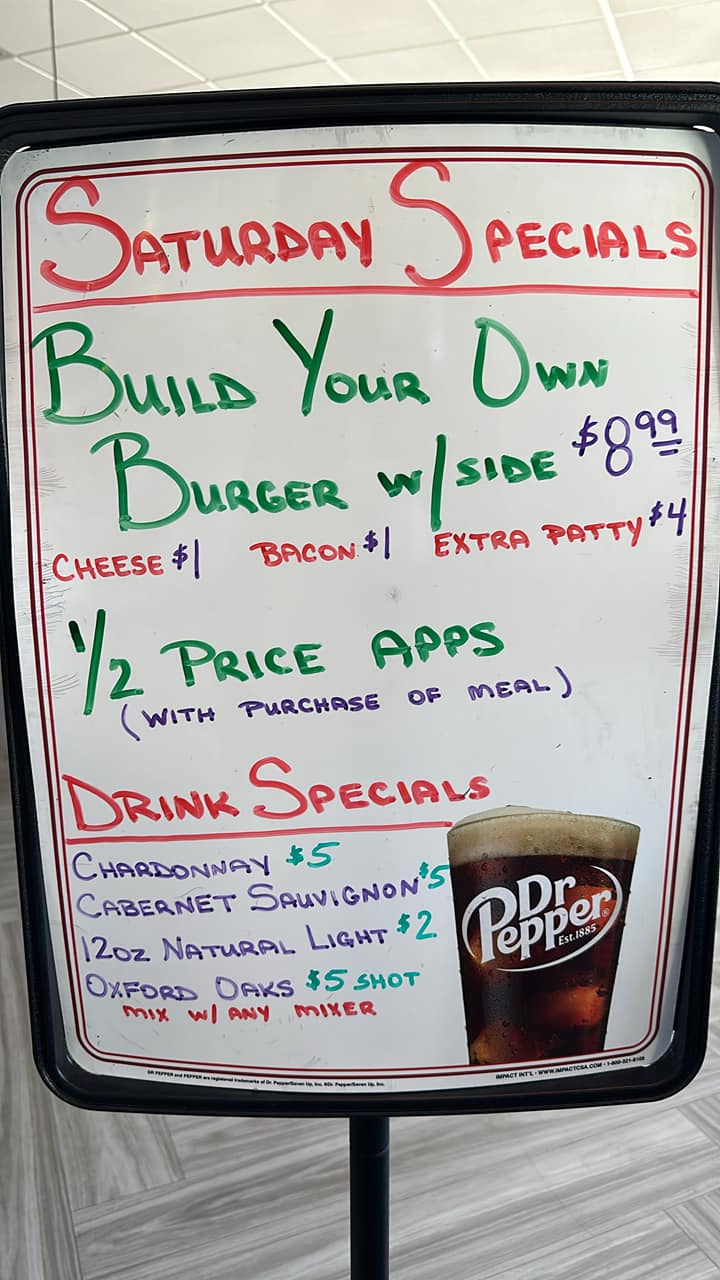 SATURDAY SPECIALS
BUILD YOUR OWN
BURGER W/SIDE $8.99
CHEESE $1 BACON $1 EXTRA PATTY $4
1/2 PRICE APPS
(WITH PURCHASE OF MEAL)
DRINK SPECIALS
CHARDONNAY $5
CABERNET SAUVIGNON $5
12OZ NATURAL LIGHT $2
OXFORD OAKS $5 SHOT
MIX W/ ANY MIXER
Dr
Pepper®
Est.1885
DR PEPPER and PEPPER are registered trademarks of Dr. Pepper/Seven Up, Inc. ©Dr. Pepper/Seven Up, Inc.
IMPACT INT'L • WWW.IMPACTCSA.COM • 1-800-321-8105